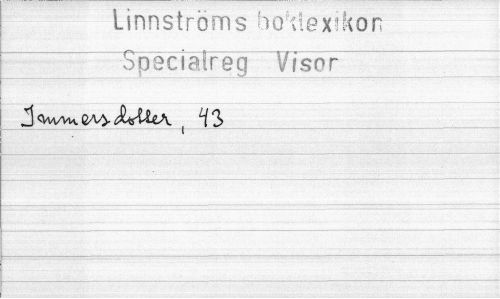 Linnströms boklexikon
Specialreg Visor
Immersdotter, 43